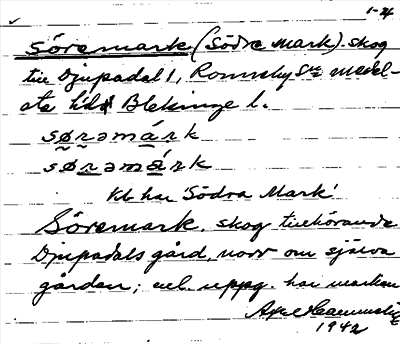 1-4
Söremark (Södre Mark). skog
till Djupadal 1, Ronneby sn medel-
sta hd Blekinge l.
sørəmark
sørəmárk
Kb har 'Södra Mark'
Söremark. skog tillhörande
Djupadals gård, norr om själva
gården; enl. uppg. har marken
Axel
1942